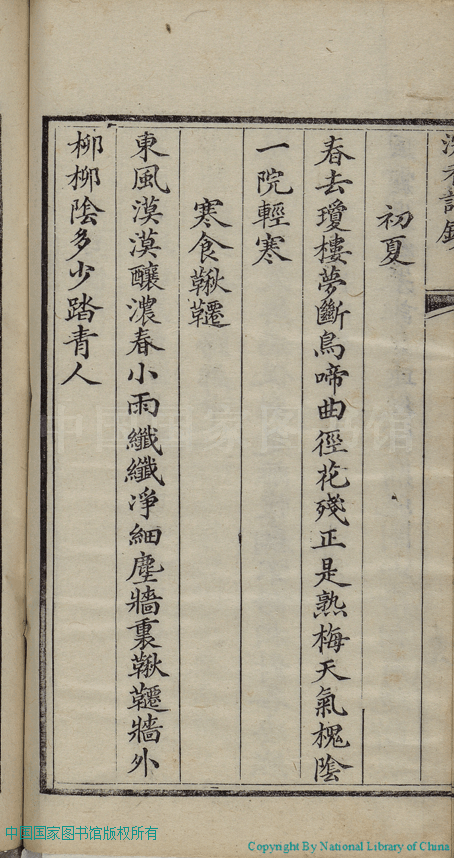 初夏
春去瓊樓夢斷鳥啼曲徑花殘正是熟梅天氣槐陰
一院輕寒
寒食鞦韆
東風漠漠釀濃春小雨纖纖淨細塵牆裏鞦韆牆外
柳柳陰多少踏青人
中国国家图书馆
中国国家图书馆版权所有
Copyright By National Library of China